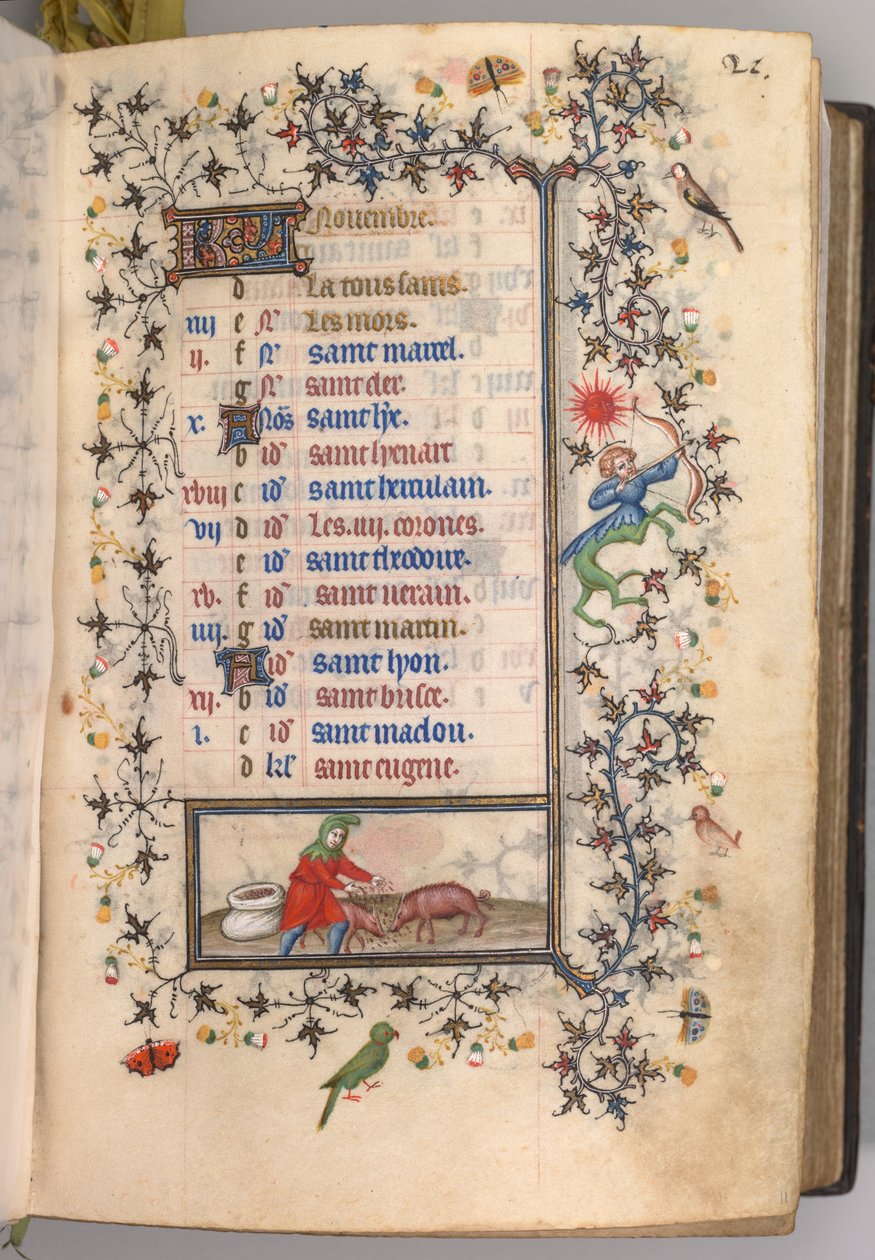 21.
KL Nouembre.
d La tous sains.
xiij e Nͦ Les mors.
ij. f Nͦ saint marcel.
g Nͦ saint cler.
x. A Noͦs saint lye.
b idͦ saint lyenart
xviij c idͦ saint herculain.
vij d idͦ Les .iiij. corones.
e idͦ saint theodore.
xv. f idͦ saint uerain.
iiij. g idͦ saint martin.
A idͦ saint lyon.
xij. b idͦ saint brisce.
i. c idͦ saint maclou.
d kl' saint eugene.